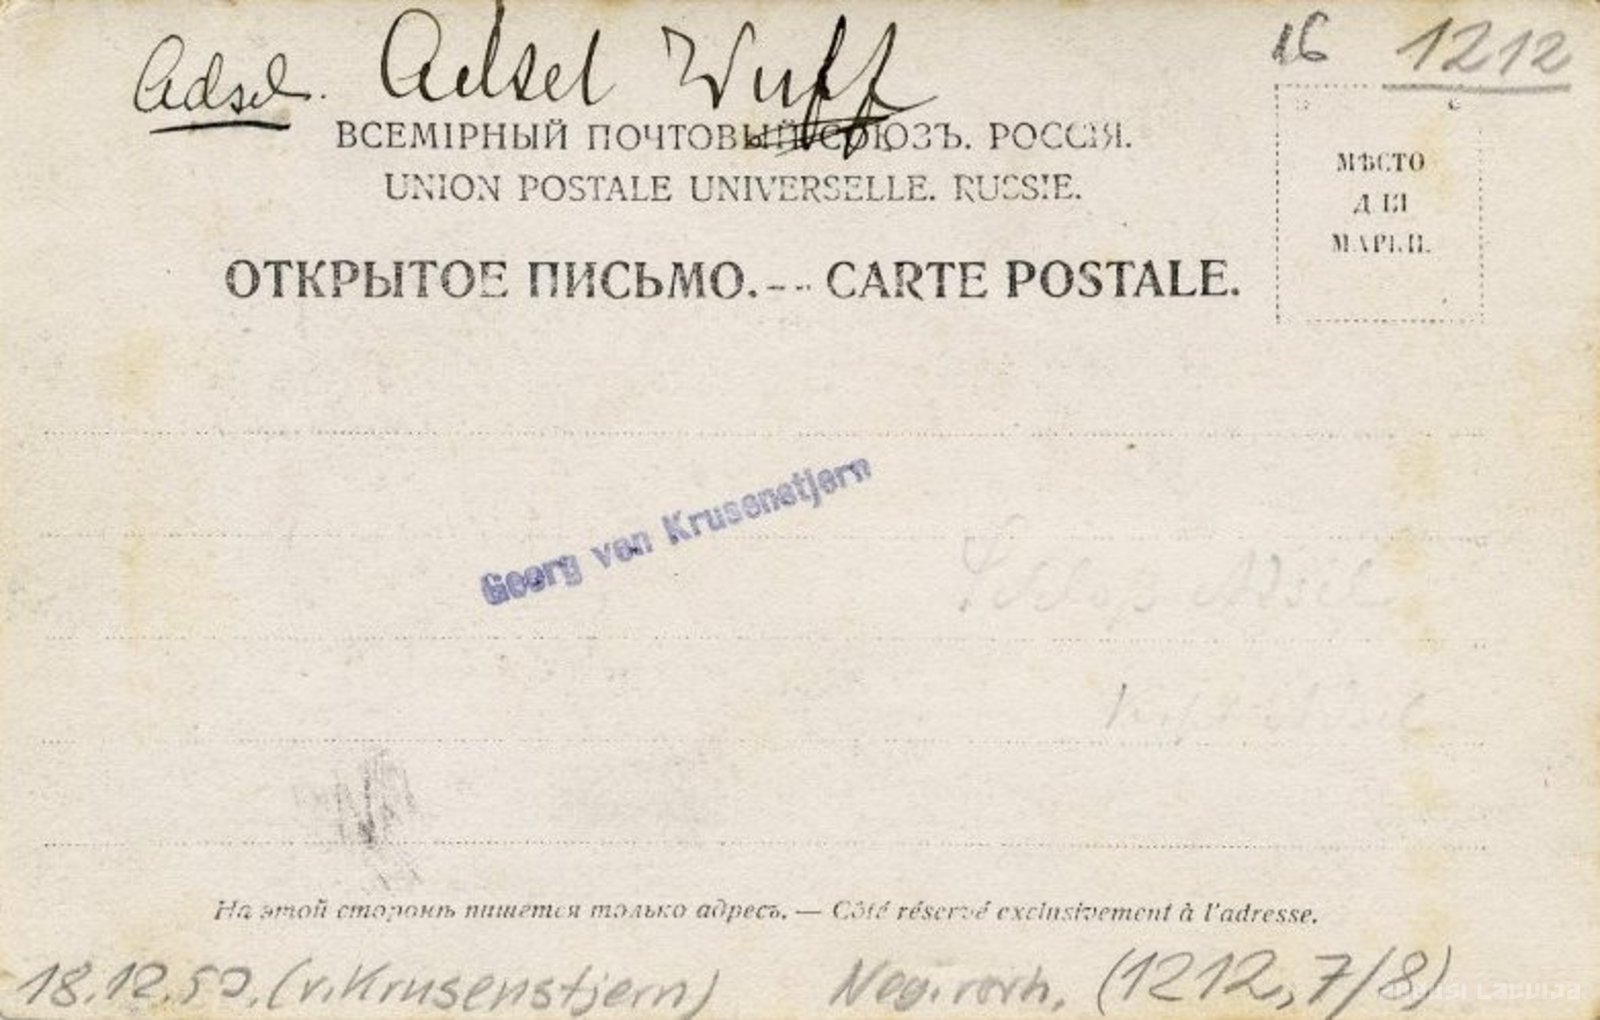 Adsel. Adsel Wulff 16 1212
ВСЕМІРНЫЙ ПОЧТОВЫЙ СОЮЗЪ. РОССІЯ.
UNION POSTALE UNIVERSELLE. RUSSIE.
МѢСТО
ДЛЯ
МАРКИ.
ОТКРЫТОЕ ПИСЬМО. -- CARTE POSTALE.
Georg von Krusenstjern
Schloß Adsel
Adsel
На этой сторонѣ пишется только адресъ. — Côté réservé exclusivement à l'adresse.
18.12.50. (v. Krusenstjern) Neg. vorh. (1212, 7/8)